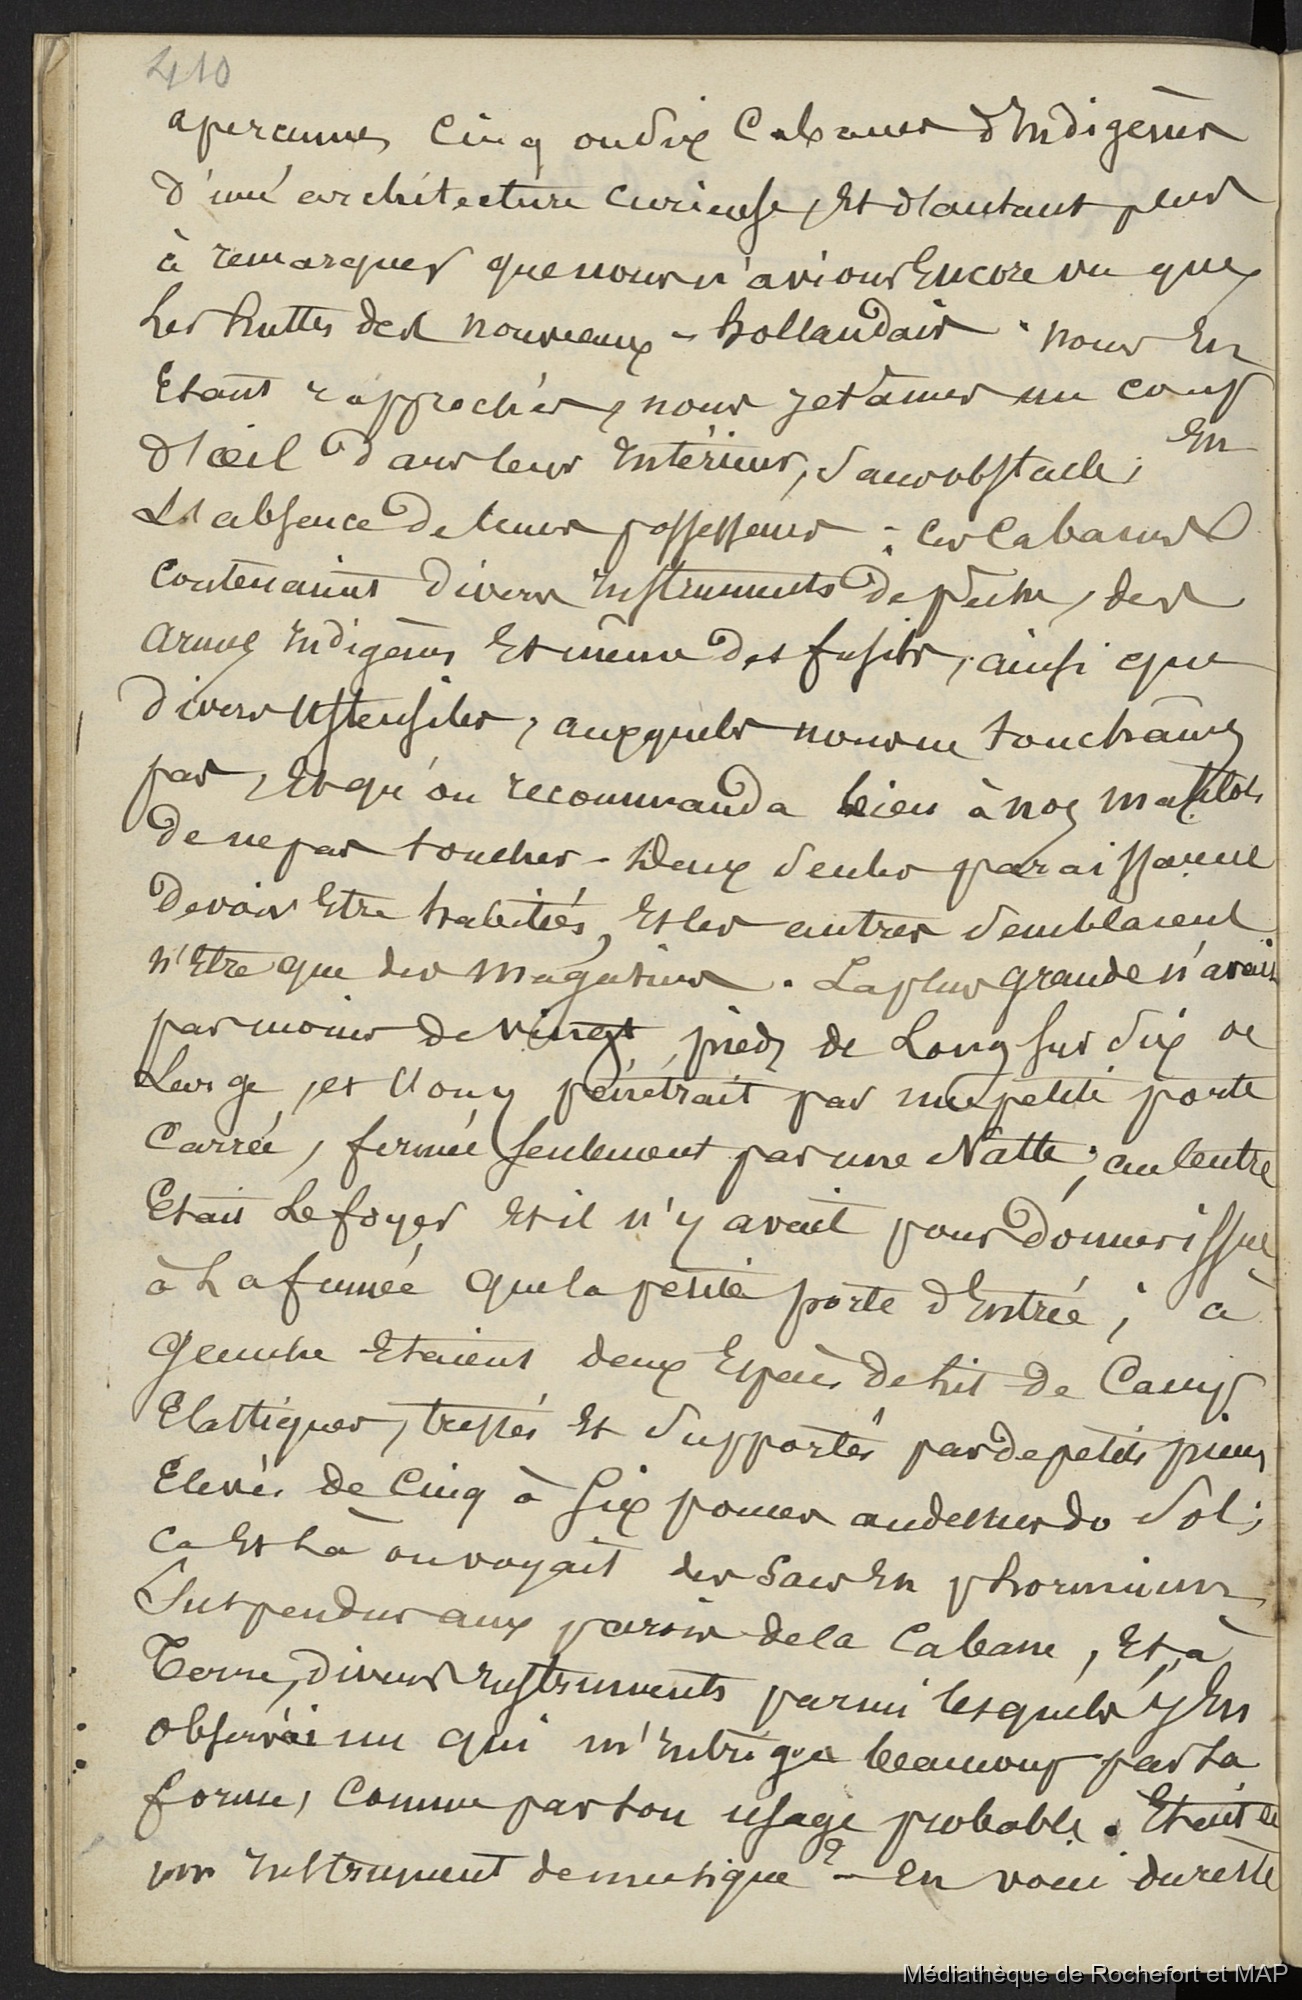 410
aperçumes cinq ou six Cabanes d'Indigènes
d'une architecture curieuse, et d'autant plus
à remarquer que nous n'avions Encore vu que
les huttes des nouveaux - hollandais. nous En
Etant rapprochés, nous jetâmes un coup
d'œil dans leur Intérieur, sans obstacle, En
L'absence de leurs possesseurs : ces Cabanes
Contenaient divers Instruments de pêche, des
armes Indigènes Et même des fusils, ainsi que
divers Ustensiles, auxquels nous ne touchâmes
pas, Et qu'on recommanda bien à nos matelots
de ne pas toucher - Deux seules paraissaient
Devoir Etre habitées, Et les autres semblaient
n'Etre que des magasins. La plus grande n'avait
pas moins de vingt pieds de Long sur dix de
Large, et l'on y pénétrait par une petite porte
Carrée, fermée seulement par une Natte ; au Centre
Etait Le foyer Et il n'y avait pour donner issue
à La fumée que la petite porte d'Entrée ; à
Gauche Etaient deux Espèces de Lit de Camp
Elastiques, tressés Et supportés par de petits pieux
Elevés de Cinq à Six pouces au dessus du Sol ;
Ca Et Là on voyait des sacs En phormium
Suspendus aux parois de la Cabane, Et, à
Terre, divers Instruments parmi lesquels j'En
observai un qui m'Intrigua beaucoup par sa
forme, Comme par son usage probable. Etait ce
un Instrument de musique ? - En voici du reste
Médiathèque de Rochefort et MAP